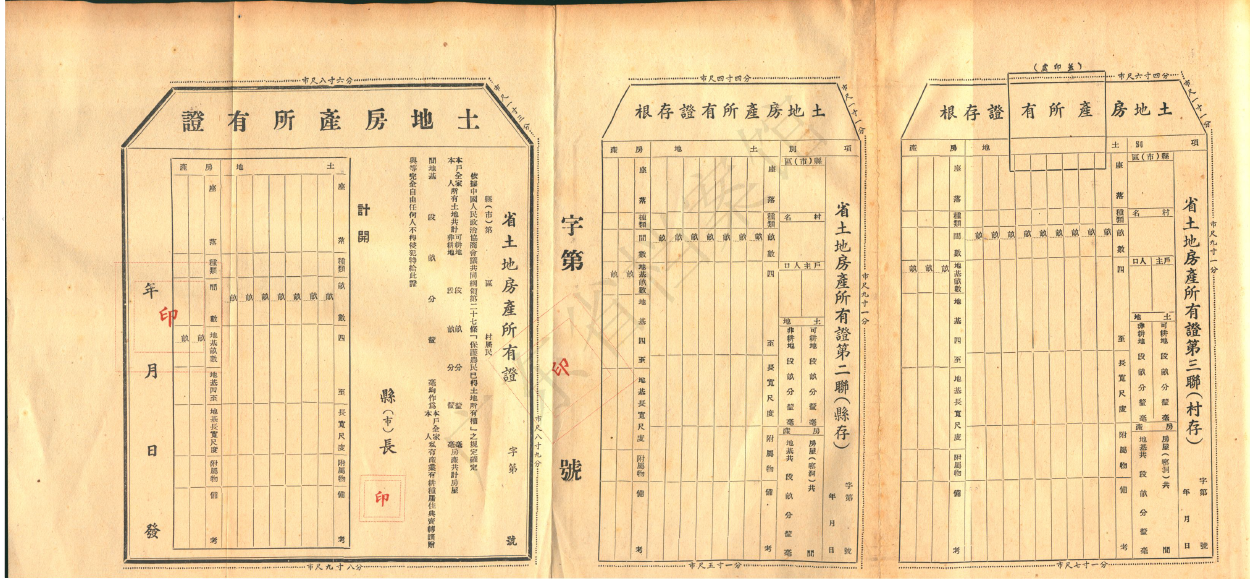 (蓋印處)
市尺四寸六分
市尺一寸二分
市尺九寸一分
市尺七寸一分
土地房產所有證存根
省土地房產所有證第三聯(村存)
字第 號
年 月 日
項別
縣(市)區
村名
戶主人口
土地
可耕地 段 畝 分 釐 毫
非耕地 段 畝 分 釐 毫
房產
房屋(窰洞)共 間
地基共 段 畝 分 釐 毫
土地
座落
種類
畝數
畝 畝 畝 畝 畝 畝 畝
四至
長寬尺度
附屬物
備考
房產
座落
種類
間數
地基畝數
畝 畝
地基四至
地基長寬尺度
附屬物
備考
市尺四寸四分
市尺一寸二分
市尺九寸一分
市尺五寸一分
土地房產所有證存根
省土地房產所有證第二聯(縣存)
字第 號
年 月 日
項別
縣(市)區
村名
戶主人口
土地
可耕地 段 畝 分 釐 毫
非耕地 段 畝 分 釐 毫
房產
房屋(窰洞)共 間
地基共 段 畝 分 釐 毫
土地
座落
種類
畝數
畝 畝 畝 畝 畝 畝 畝
四至
長寬尺度
附屬物
備考
房產
座落
種類
間數
地基畝數
畝 畝
地基四至
地基長寬尺度
附屬物
備考
字第 號
印
市尺八寸六分
市尺八寸九分
市尺九寸八分
土地房產所有證
省土地房產所有證 字第 號
縣(市)第 區 村居民
依據中國人民政治協商會議共同綱領第二十七條「保護農民已得土地所有權」之規定確定
本戶全家本人所有土地共計可耕地非耕地 段 畝 分 釐 毫房產共計房屋
間地基 段 畝 分 釐 毫均作為本戶全家本人私有產業有耕種居住典賣轉讓贈
與等完全自由任何人不得侵犯特給此證
計開
縣(市)長
印
土地
座落
種類
畝數
畝 畝 畝 畝 畝 畝 畝
四至
長寬尺度
附屬物
備考
房產
座落
種類
間數
地基畝數
畝 畝
地基四至
地基長寬尺度
附屬物
備考
年 月 日 發
印